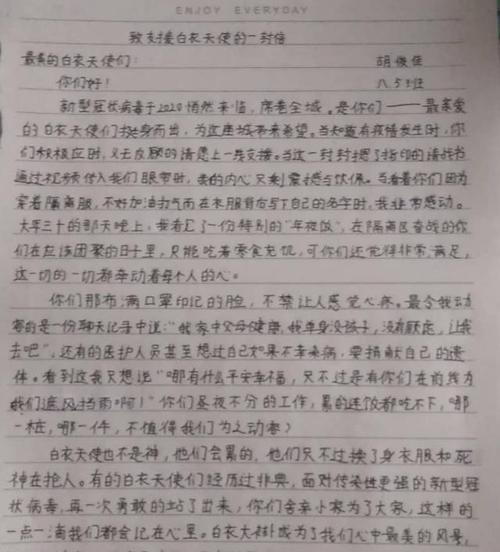 ENJOY EVERYDAY
致支援白衣天使的一封信
最美的白衣天使们: 胡俊佳
你们好! 八.5班
新型冠状病毒于2020悄然来临,席卷全城。是你们——最亲爱
的白衣天使们挺身而出,为这座城带来希望。当知道有疫情发生时,你
们积极应时,义无反顾的请愿上一线支援。当这一封封摁了指印的请战书
通过视频传入我们眼帘时,我的内心只剩震撼与钦佩。当看着你们因为
穿着隔离服,不好加油打气而在衣服背后写下自己的名字时,我非常感动。
大年三十的那天晚上,我看见了一份特别的“年夜饭”,在隔离区奋战的你
们在应该团聚的日子里,只能吃着零食充饥,可你们还觉得非常满足,
这一切的一切都牵动着每个人的心。
你们那布满口罩印记的脸,不禁让人感觉心疼。最令我动
容的是一份聊天记录中说:“我家中父母健康,我单身没孩子,没有顾虑,让我
去吧”,还有的医护人员甚至想过自己如果不幸染病,要捐献自己的遗
体。看到这我只想说“哪有什么平安幸福,只不过是有你们在前线为
我们遮风挡雨啊!”你们昼夜不分的工作,累的连饭都吃不下,哪
一桩,哪一件,不值得我们为之动容?
白衣天使也不是神,他们会累的,他们只不过换了身衣服和死
神在抢人。有的白衣天使们经历过非典,面对传染性更强的新型冠
状病毒,再一次勇敢的站了出来,你们舍弃小家为了大家,这样的
一点一滴我们都会记在心里。白衣大褂成为了我们心中最美的风景,